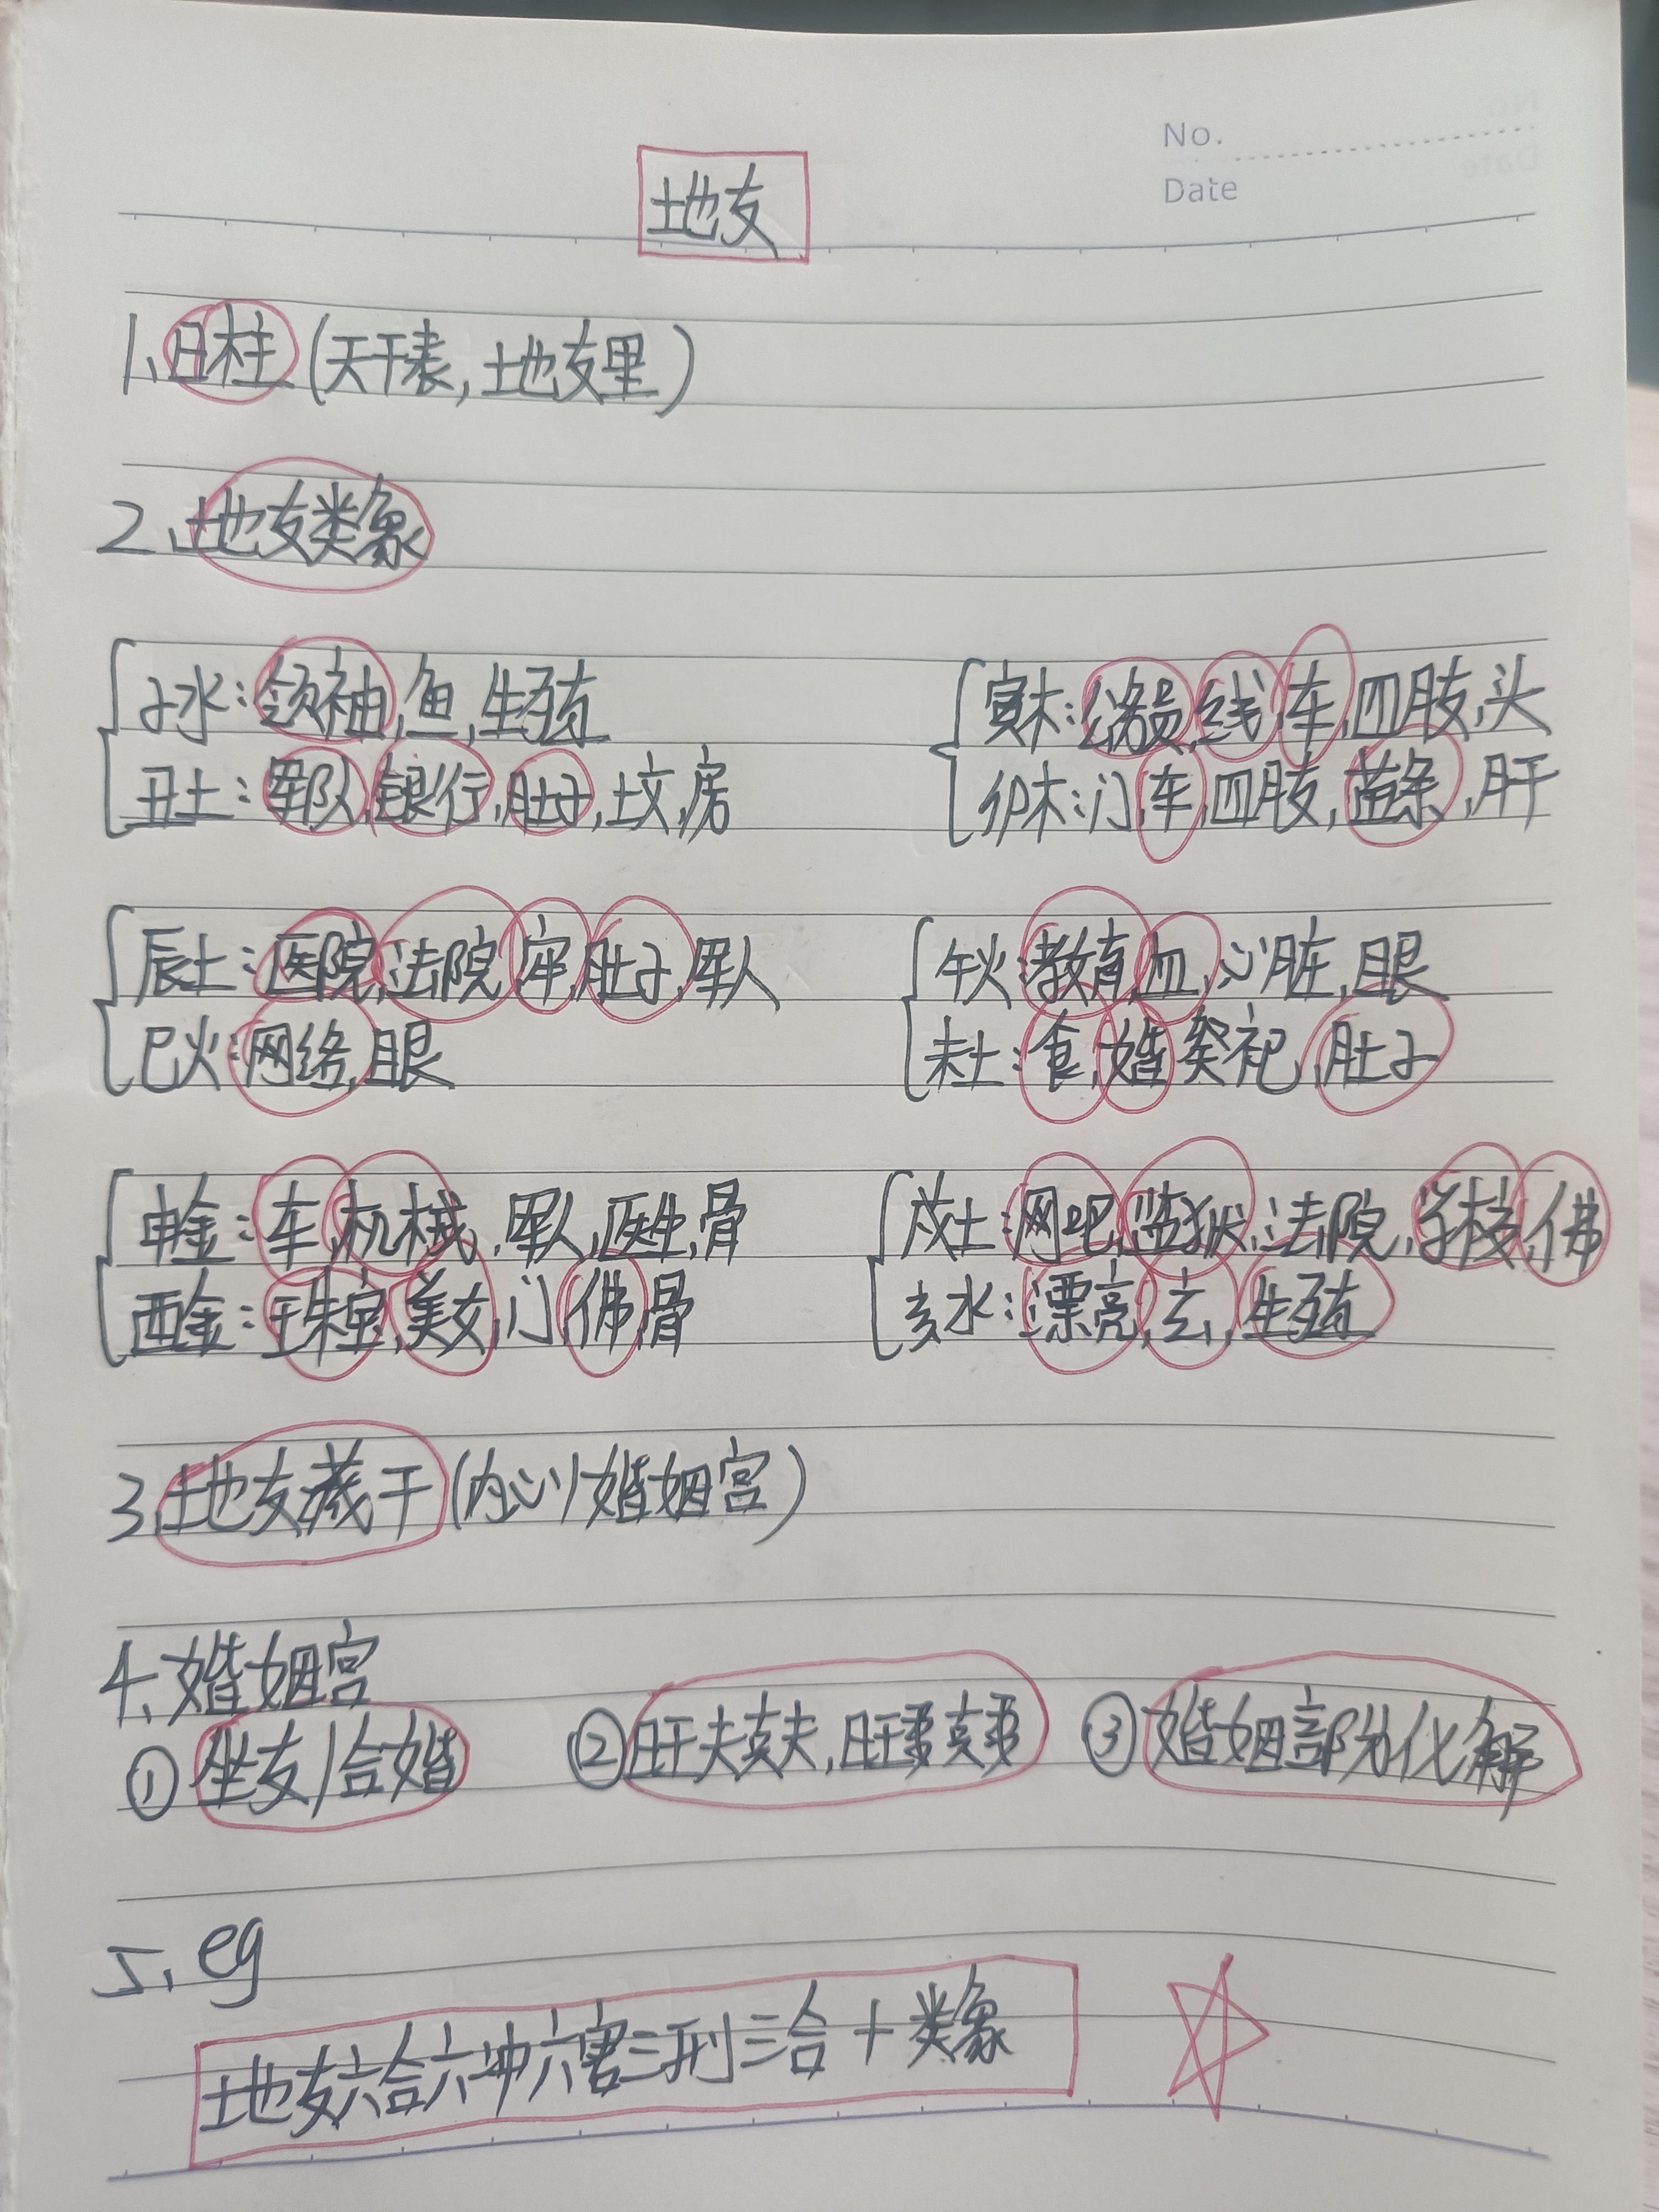 No.
Date
地支
1、日柱(天干表,地支里)
2、地支类象
子水:领袖,鱼,生殖
丑土:军队,银行,肚子,坟,房
寅木:公务员,线,车,四肢,头
卯木:门,车,四肢,蓝条,肝
辰土:医院,法院,牢,肚子,军人
巳火:网络,眼
午火:教育,血,心脏,眼
未土:食,婚,祭祀,肚子
申金:车,机械,军人,医生,骨
酉金:珠宝,美女,门,佛,骨
戌土:网吧,监狱,法院,学校,佛
亥水:漂亮,玄,生殖
3、地支藏干(内心/婚姻宫)
4、婚姻宫
①坐支/合婚 ②旺夫克夫,旺妻克妻 ③婚姻部分化解
5、eg
地支六合六冲六害三刑三合+类象